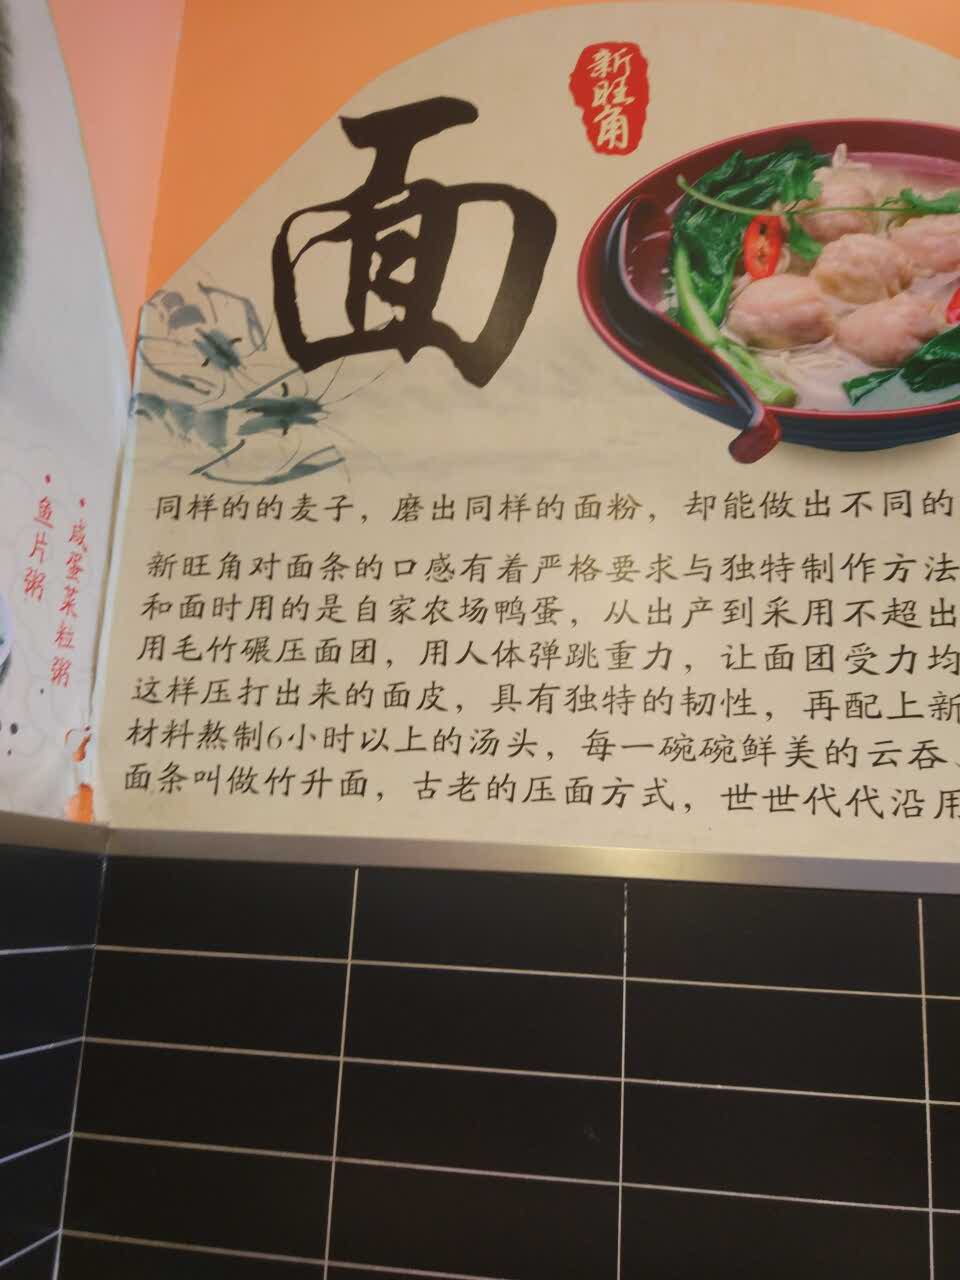 新旺角
面
同样的的麦子，磨出同样的面粉，却能做出不同的
新旺角对面条的口感有着严格要求与独特制作方法
和面时用的是自家农场鸭蛋，从出产到采用不超出
用毛竹碾压面团，用人体弹跳重力，让面团受力均
这样压打出来的面皮，具有独特的韧性，再配上新
材料熬制6小时以上的汤头，每一碗碗鲜美的云吞
面条叫做竹升面，古老的压面方式，世世代代沿用
·咸蛋菜粒粥
·鱼片粥